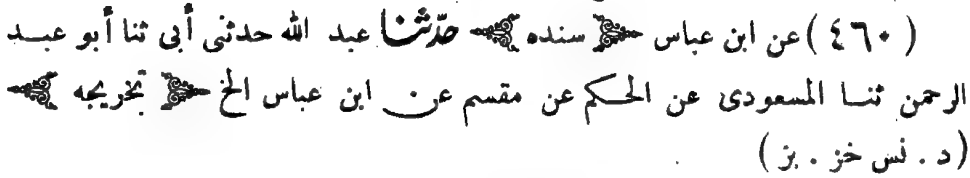 (٤٦٠) عن ابن عباس ﴿ سنده ﴾ حدّثنا عبد الله حدثنى أبى ثنا أبو عبد
الرحمن ثنا المسعودى عن الحكم عن مقسم عن ابن عباس الخ ﴿ تخريجه ﴾
(د . نس خز . بز)